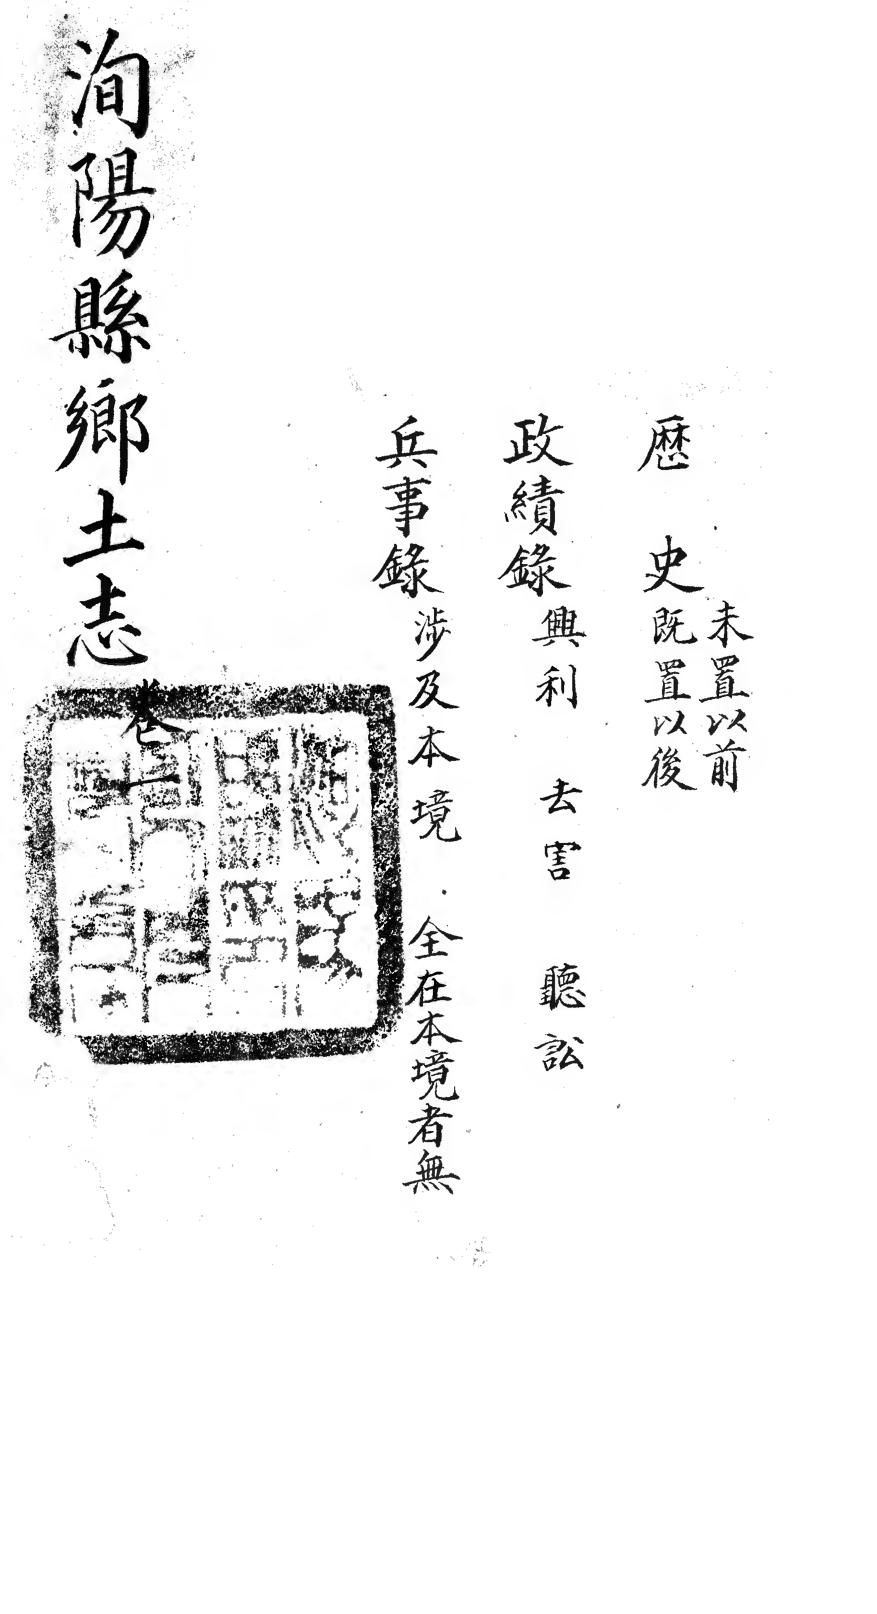 歷 史 未置以前
既置以後
政績錄 興利 去害 聽訟
兵事錄 涉及本境 全在本境者無
洵陽縣鄉土志 卷一